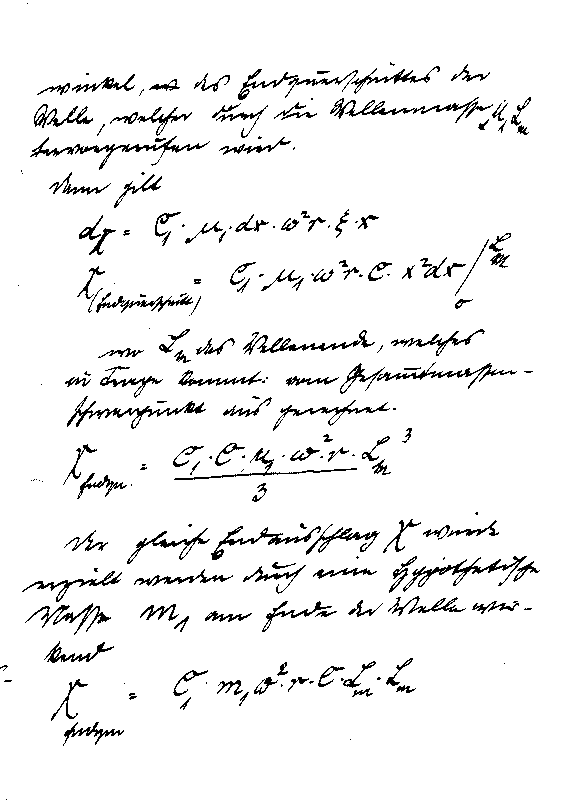 winkel, des Endquerschnittes der
Welle, welcher durch die Wellenmasse μ₁ Lₘ
hervorgerufen wird.
dann gilt
dχ = C₁ · μ₁ · dx · ω²r · ξ · x
χ (Endquerschnitt) = C₁ · μ₁ · ω²r · C · x²dx / Lₘ o
wo Lₘ das Wellenende, welches
in Frage kommt: vom Gesamtmassen-
schwerpunkt aus gerechnet.
χ Endqu. = C₁ · C · μ₁ · ω² · r · Lₘ³ / 3
Der gleiche Endausschlag χ würde
erzielt werden durch eine hypothetische
Masse m₁ am Ende der Welle wir-
kend
χ Endqu = C₁ · m₁ ω² · r · C · Lₘ · Lₘ